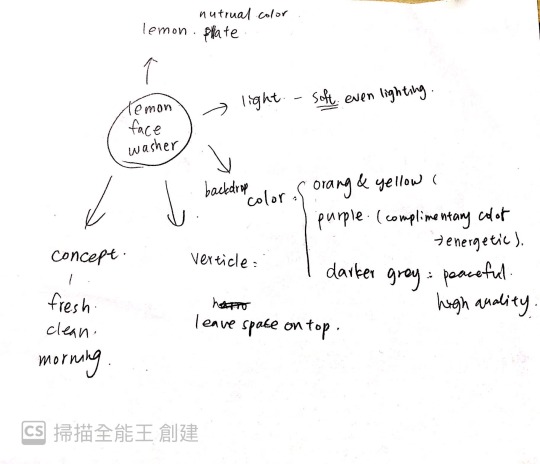 nutrual color
lemon. plate
lemon
face
washer
light - soft even lighting.
backdrop color:
orang & yellow (
purple. (complimentary color
→energetic).
darker grey: peaceful.
high quality.
concept.
fresh.
clean.
morning.
verticle:
leave space on top.
CS 掃描全能王 創建